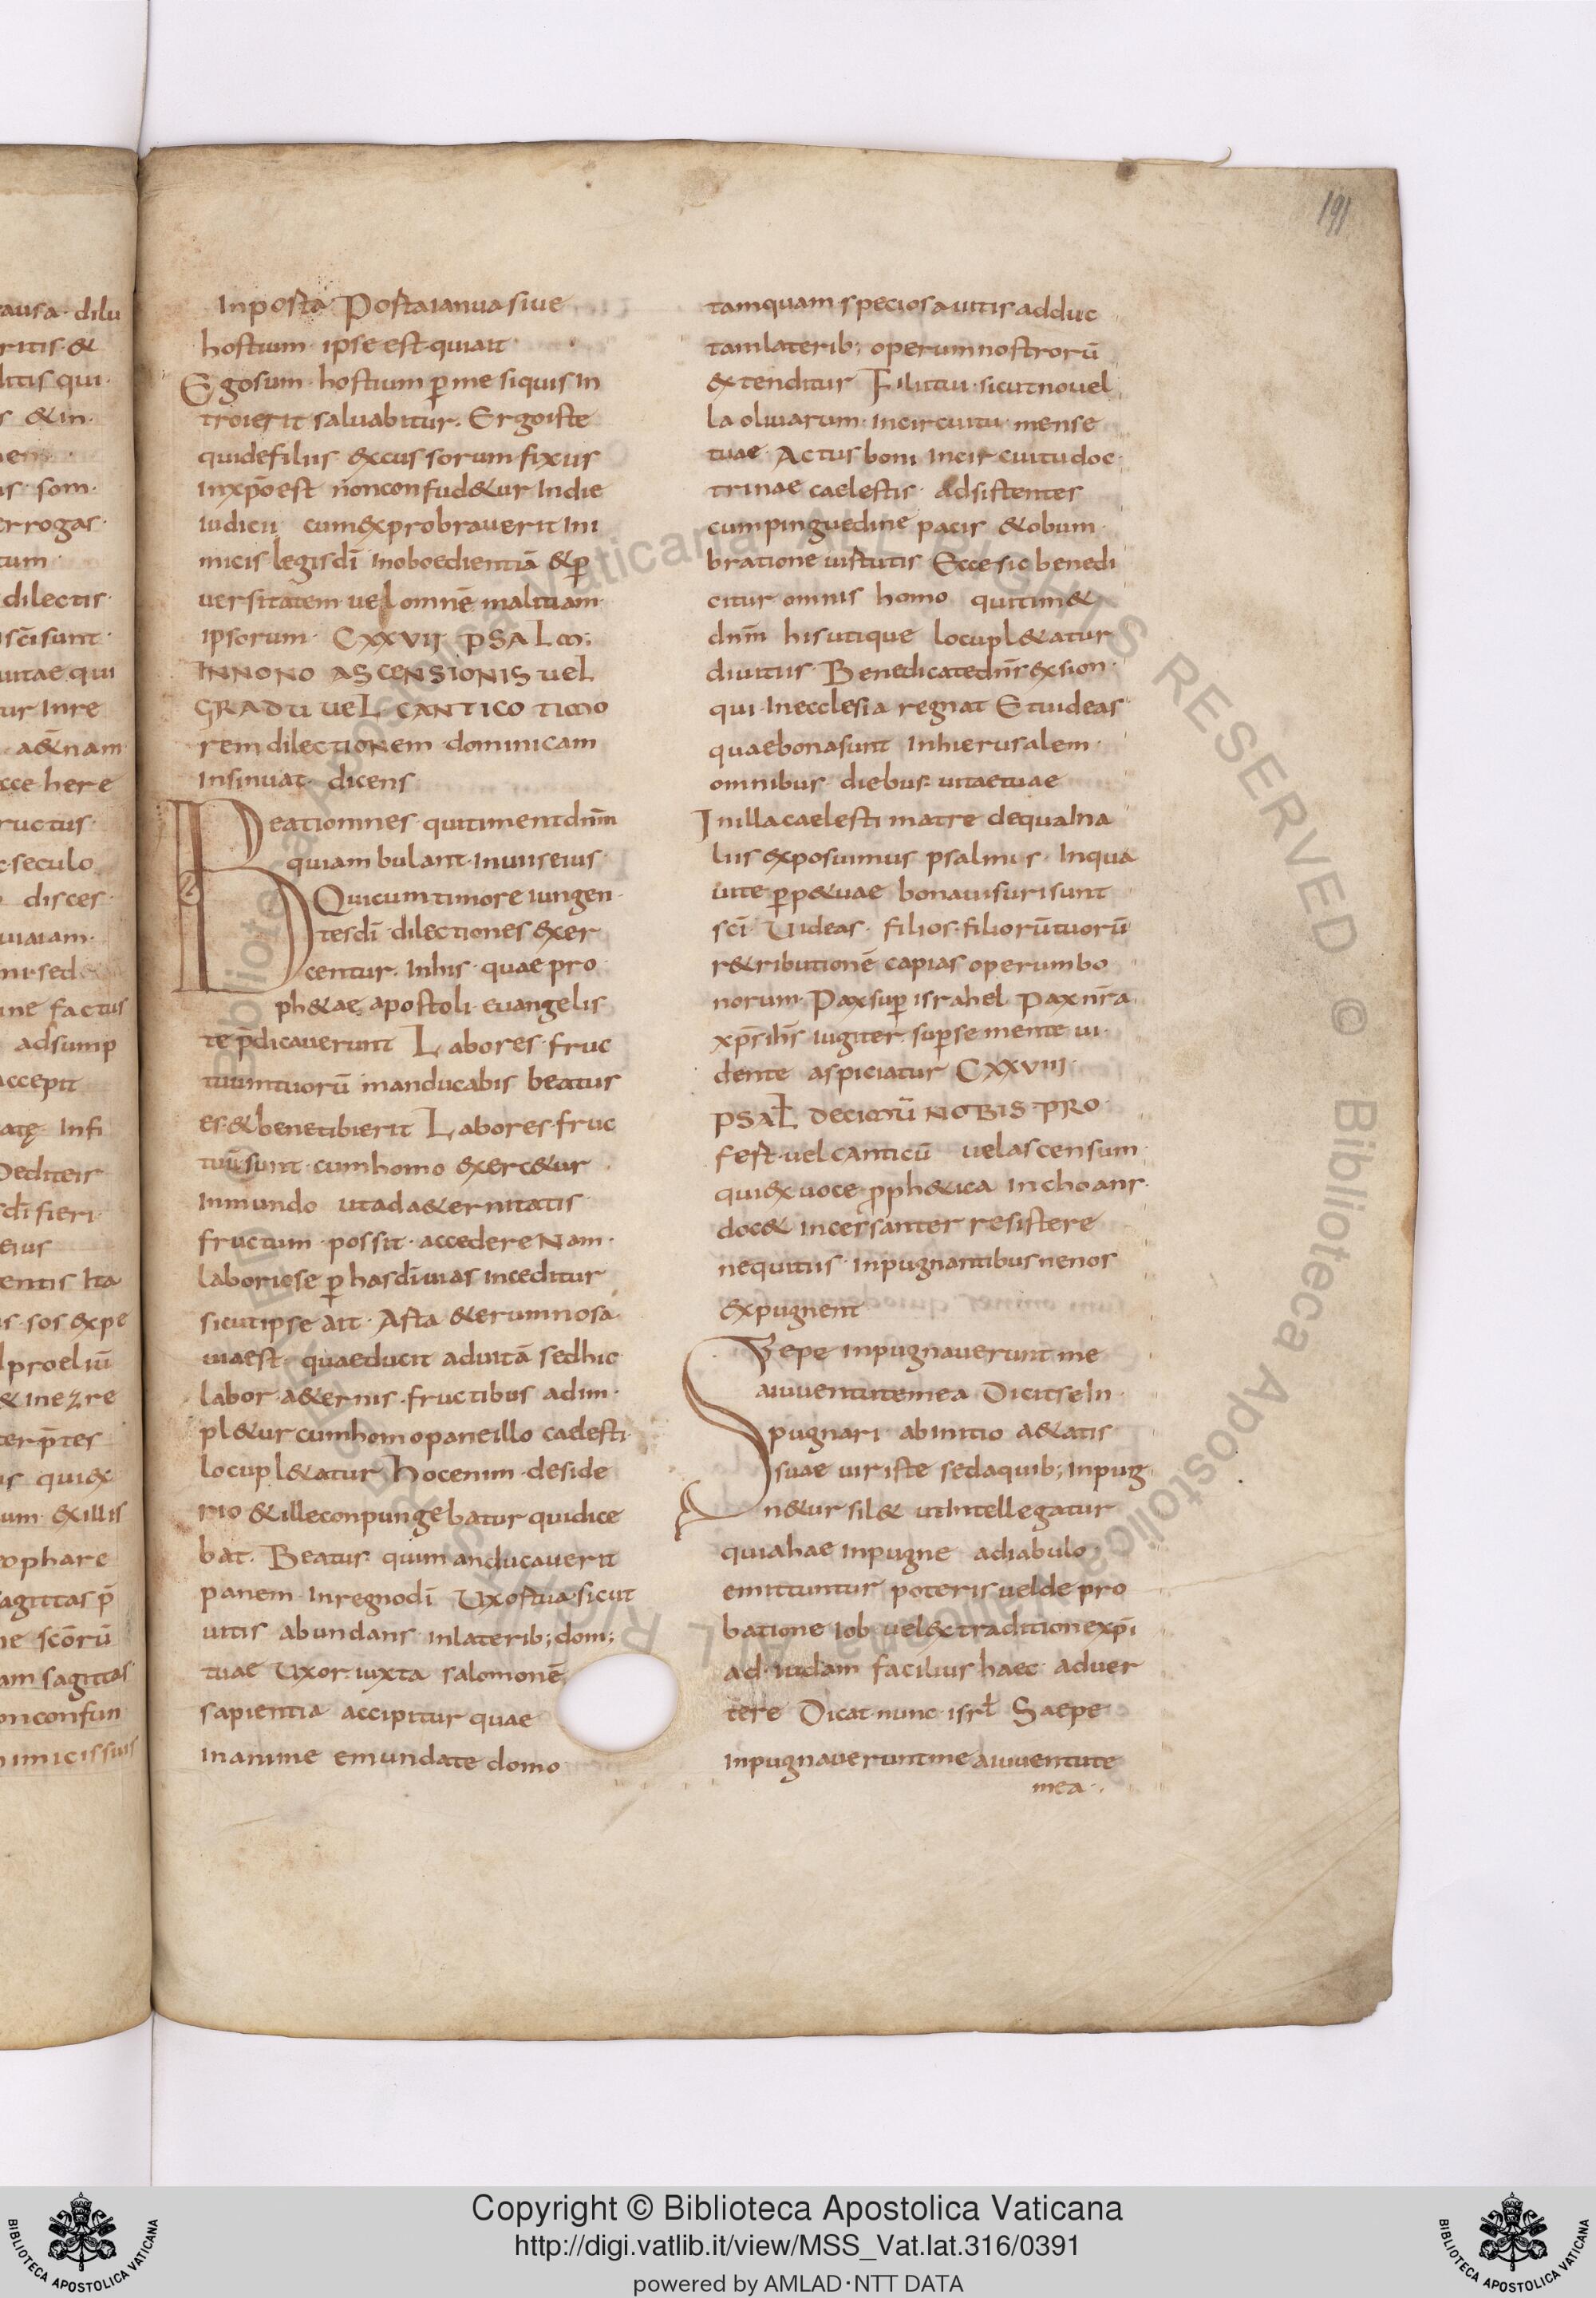 191
ausa dilu
ritis &
litis qui
s & in
s som
errogas
tum
dilectis
scīsunt
uitae qui
ur Inre
a&nam
cce here
ructus
c seculo
disces
uiaiam
sed
ne factus
adsump
accepit
atę Infi
Dediteir
dī fieri
eius
entis Ita
s sos expe
l proeliū
& inezre
terp̄tes
s quiex
um exillis
ophare
sagittas p̄
ne scōrū
am sagittas
onconfun
nimicissuis
Inposta Postaianua siue
hostium ipse est quiait
Egosum hostium p̄ me siquis In
troierit saluabitur. Ergoiste
quidefiliis excussorum fixus
Inxp̄oest nonconfud&ur Indie
iudicii cumexprobrauerit Ini
micis legisdī Inoboedientiā &p̄
uersitatem uel omnē malitiam
ipsorum CXXVII PSALM:
INNONO ASCENSIONIS UEL
GRADU UEL CANTICO TIMO
rem dilectionem dominicam
Insinuat dicens
Beatiomnes quitimentdnm̄
quiambulant Inuiiseius
Quicumtimore iungen
tesdī dilectiones exer
centur. Inhis quae pro
ph&ae apostoli euangelis
te p̄dicauerunt Labores fruc
tuumtuorū manducabis beatus
es &benetibierit Labores fruc
tuūsunt cumhomo exerc&ur
Inmundo utada&ernitatis
fructum possit accedere Nam
laboriose p̄ hasdīuias inceditur
sicutipse ait Asta &erumnosa
uiaest quaeducit aduitā sedhic
labor a&ernis fructibus adim
pl&ur cumhomopaneillo caelesti
locupl&atur Hocenim deside
rio &illeconpungebatur quidice
bat. Beatus quimanducauerit
panem Inregnodī Uxostua sicut
uitis abundans Inlaterib; dom;
tuae Uxor iuxta salomonē
sapientia accipitur quae
Inanime emundate domo
tamquam speciosa uitis adduc
tamlaterib; operumnostrorū
extenditur Filiitui sicutnouel
la oliuarum Incircuitu mense
tuae Actus boni Incircuitudoc
trinae caelestis adsistentes
cumpinguedine pacis &obum
bratione uistutis Eccesic benedi
citur omnis homo quitim&
dnm̄ hisutique locupl&atur
diuitus Benedicatednr̄exsion
qui Inecclesia regnat Etuideas
quaebonasunt Inhierusalem
omnibus diebus uitaetuae
Inillacaelesti matre dequaIna
liis exposuimus psalmis Inqua
uite p̄p&uae bonauisurisunt
scī Uideas filios filiorūtuorū
r&ributionē capias operumbo
norum Paxsup̄ israhel Paxnr̄a
xp̄s ihs̄ iugiter sup̄se mente ui
dente aspiciatur CXXVIII
PSAL DECIMŪ NOBIS PRO
fest uel canticū uelascensum
quiexuoce p̄ph&ica Inchoans
doc& incessanter resistere
nequitiis Inpugnantibusnenos
expugnent
Sepe Inpugnauerunt me
aiuuentutemea DicitseIn
pugnari abinitio a&atis
suae uiriste sedaquib; Inpug
n&ur sil& utIntellegatur
quiahae Inpugne adiabulo
emittuntur poteris uelde pro
batione Iob uelextraditionexp̄i
ad iudam facilius haec aduer
tere Dicat nunc isrl̄ Saepe
Inpugnaueruntmeaiuuentute
mea
Copyright © Biblioteca Apostolica Vaticana
http://digi.vatlib.it/view/MSS_Vat.lat.316/0391
powered by AMLAD·NTT DATA